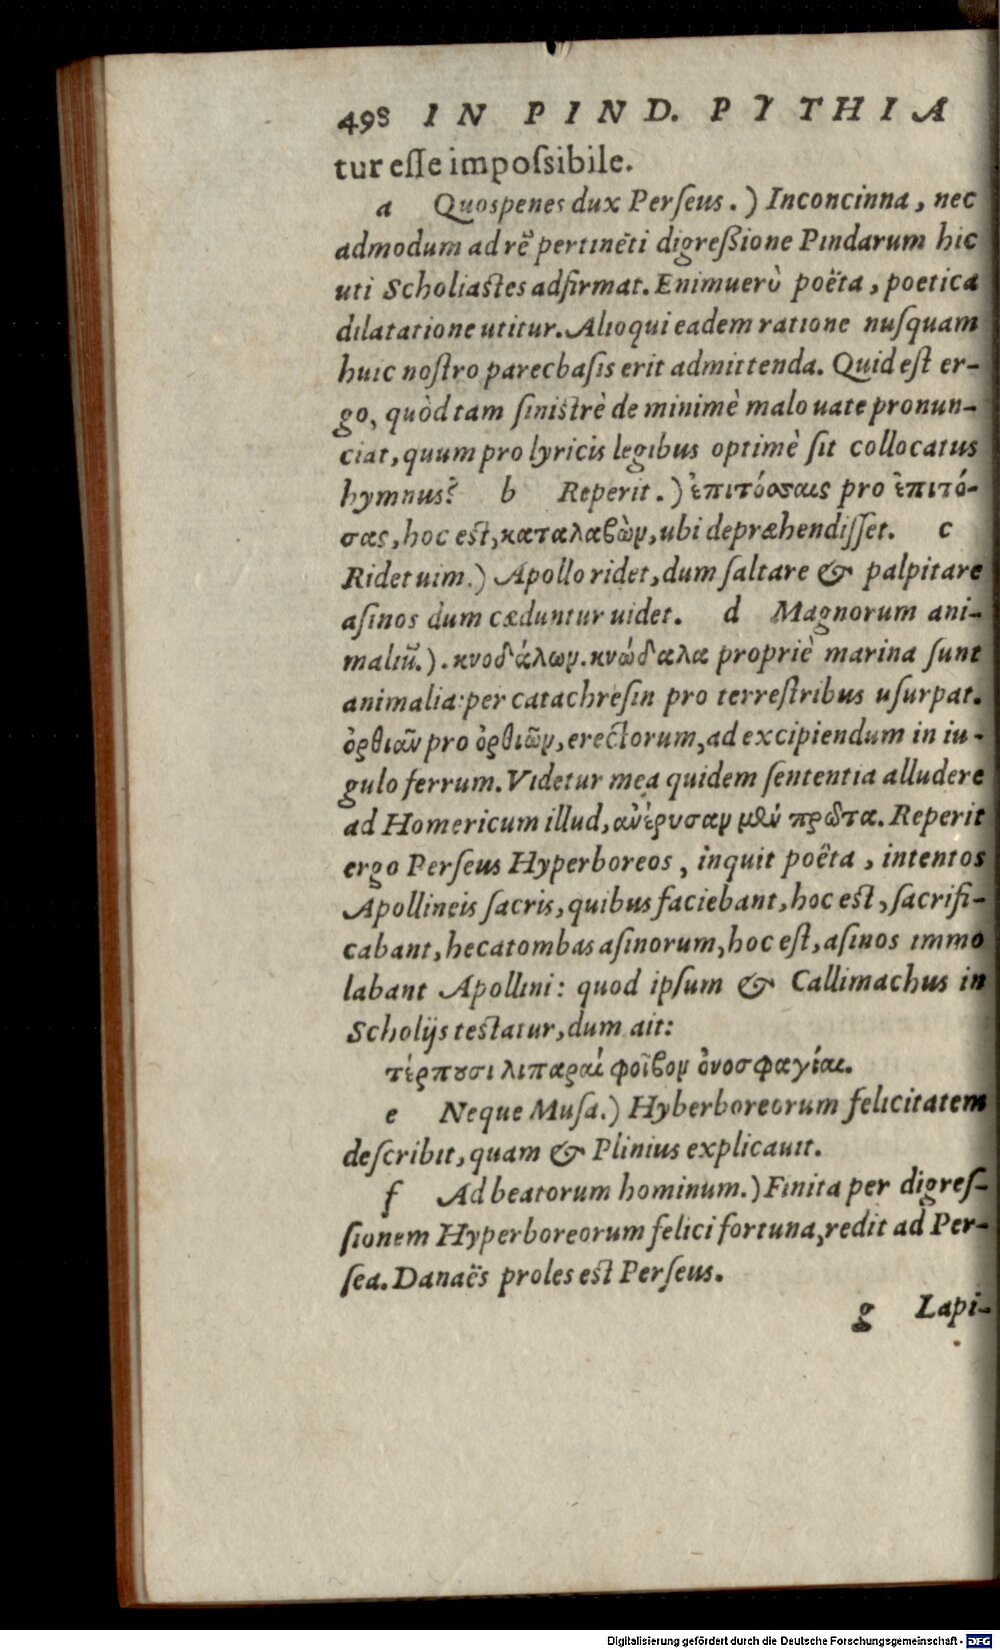 498 IN PIND. PYTHIA
tur esse impoſsibile.
a Quospenes dux Perſeus.) Inconcinna, nec
admodum ad rē pertinēti digreßione Pindarum hic
uti Scholiastes adfirmat. Enimuerò poëta, poetica
dilatatione utitur. Alioqui eadem ratione nuſquam
huic noſtro parecbasis erit admittenda. Quid eſt er-
go, quòd tam ſinistrè de minimè malo uate pronun-
ciat, quum pro lyricis legibus optimè ſit collocatus
hymnus? b Reperit.) ἐπιτόσσαις pro ἐπιτό-
σας, hoc est, καταλαβὼν, ubi depræhendiſſet. c
Ridet uim.) Apollo ridet, dum ſaltare & palpitare
aſinos dum cæduntur uidet. d Magnorum ani-
maliū.). κνοδάλων. κνώδαλα propriè marina ſunt
animalia: per catachreſin pro terreſtribus uſurpat.
ὀρθιᾶν pro ὀρθιῶν, erectorum, ad excipiendum in iu-
gulo ferrum. Videtur mea quidem ſententia alludere
ad Homericum illud, αὐέρυσαν μὲν πρῶτα. Reperit
ergo Perſeus Hyperboreos, inquit poëta, intentos
Apollineis ſacris, quibus faciebant, hoc est, ſacrifi-
cabant, hecatombas aſinorum, hoc eſt, aſinos immo
labant Apollini: quod ipſum & Callimachus in
Scholijs testatur, dum ait:
τέρπουσι λιπαραί φοῖβον ὀνοσφαγίαι.
e Neque Muſa.) Hyberboreorum felicitatem
deſcribit, quam & Plinius explicauit.
f Ad beatorum hominum.) Finita per digreſ-
ſionem Hyperboreorum felici fortuna, redit ad Per-
ſea. Danaës proles est Perſeus.
g Lapi-
Digitalisierung gefördert durch die Deutsche Forschungsgemeinschaft - DFG